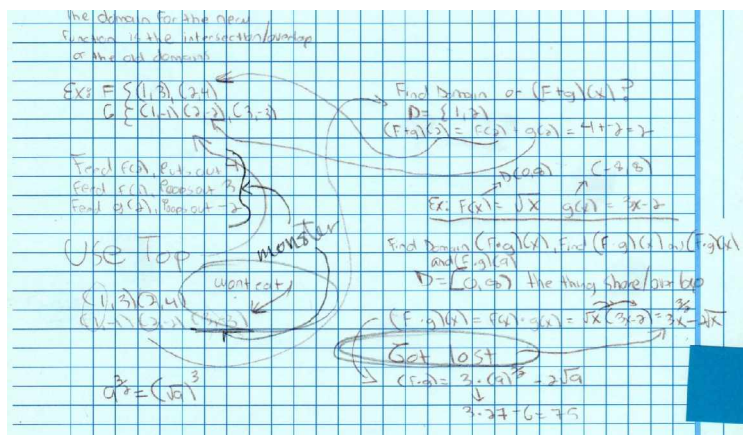 The domain for the new
function is the intersection/overlap
of the old domains
Ex: F {(1,3), (2,4)
G {(1,-1) (2,-2), (3,-3)
Feed f(2), Put out 4
Feed f(1), Poops out 3
Feed g(2), Poops out -2
monster
Use Top
wont eat
(1,3) (2,4)
(1,-1) (2,-2) (3,-3)
9^3/2 = (√9)^3
Find Domain of (F+g)(x)?
D = {1,2}
(F+g)(2) = F(2) + g(2) = 4+-2=2
Ex: F(x) = √x g(x) = 3x-2
Find Domain (F+g)(x), Find (F-g)(x) (F·g)(x)
and (F·g)(9)
D = [0,∞) the thing share/overlap
(F·g)(x) = F(x)·g(x) = √x (3x-2) = 3x^3/2 - 2√x
Got lost
(F·g) = 3·(9)^3/2 - 2√9
3·27-6=75